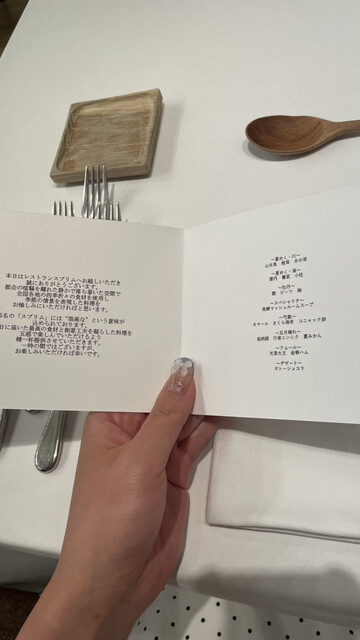 本日はレストランスプリムへお越しいただき
誠にありがとうございます。
都会の喧騒を離れた静かで落ち着いた空間で
全国各地の四季折々の食材を使用し
季節の情景を表現した料理を
お愉しみにいただければと思います。
店名の「スプリム」には“最高な”という意味が
込められております。
日に届いた最高の食材と創意工夫を凝らした料理を
五感で楽しんでいただけるよう
精一杯提供させていただきます。
一時の間ではございますが、
お楽しみいただければ幸いです。
～夏めく・川～
～夏めく・海～
～牡丹～
～スペシャリテ～
発酵マッシュルームスープ
オマール さくら海老 コニャック卵
～五月晴れ～
桃娯鯛 行者ニンニク 夏みかん
～アムール～
天恵大王 金華ハム
～デザート～
ガトーショコラ